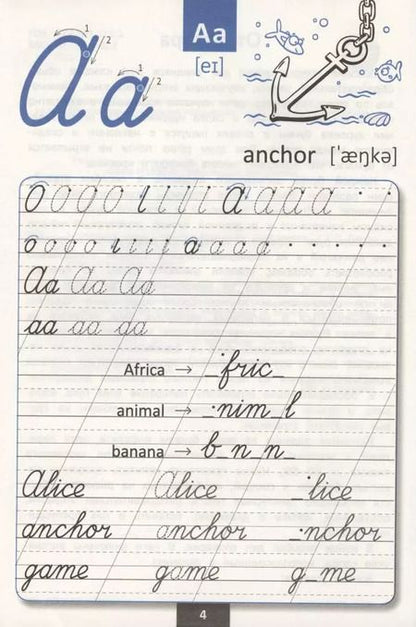 Aa
1
2
1
2
Aa
[eɪ]
anchor ['æŋkə]
O O O O l l l l A A A A A
o o o o ı ı ı ı a a a a a
Aa Aa Aa
aa aa aa
Africa → _fric_
animal → _nim_l
banana → b_n_n_
Alice Alice _lice
anchor anchor _nchor
game game g_me
4